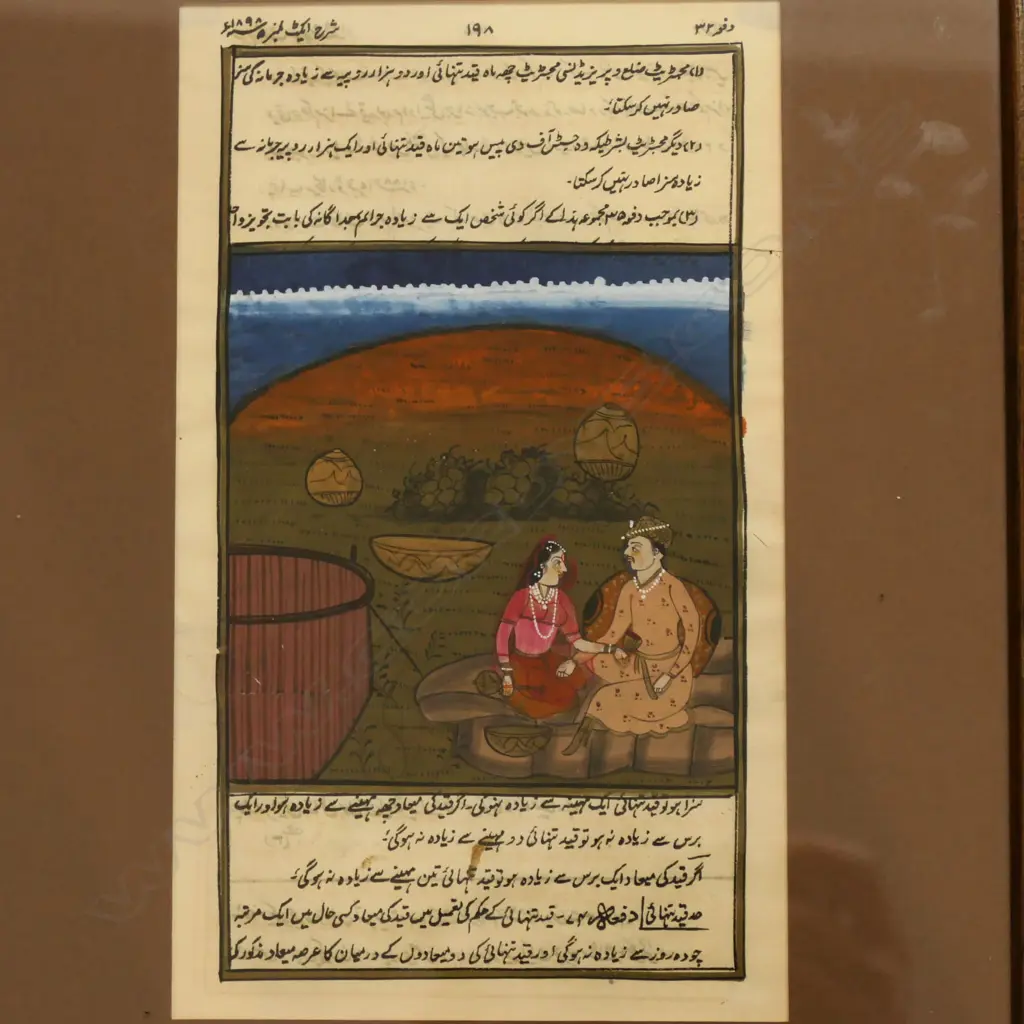 دفعہ ۳۲
۱۹۸
شرح ایکٹ نمبر ۵ ۱۸۹۸ء
(۱) مجسٹریٹ ضلع و پریزیڈنسی مجسٹریٹ چھ ماہ قید تنہائی اور دو ہزار روپیہ سے زیادہ جرمانہ کی سزا
صادر نہیں کر سکتا۔
(۲) دیگر مجسٹریٹ بشرطیکہ وہ جسٹس آف دی پیس ہو تین ماہ قید تنہائی اور ایک ہزار روپیہ جرمانہ سے
زیادہ سزا صادر نہیں کر سکتا۔
(۳) بموجب دفعہ ۳۵ مجموعہ ہذا کے اگر کوئی شخص ایک سے زیادہ جرائم جداگانہ کی بابت تجویز واحد
سزا ہو تو قید تنہائی ایک مہینہ سے زیادہ نہوگی۔ اگر قید کی میعاد چھ مہینے سے زیادہ ہو اور ایک
برس سے زیادہ نہ ہو تو قید تنہائی دو مہینے سے زیادہ نہ ہوگی۔
اگر قید کی میعاد ایک برس سے زیادہ ہو تو قید تنہائی تین مہینے سے زیادہ نہ ہوگی۔
حد قید تنہائی دفعہ ۷۴۔ قید تنہائی کے حکم کی تعمیل میں قید کی میعاد کسی حال میں ایک مرتبہ
چودہ روز سے زیادہ نہ ہوگی اور قید تنہائی کی دو میعادوں کے درمیان کا عرصہ میعاد مذکور کی